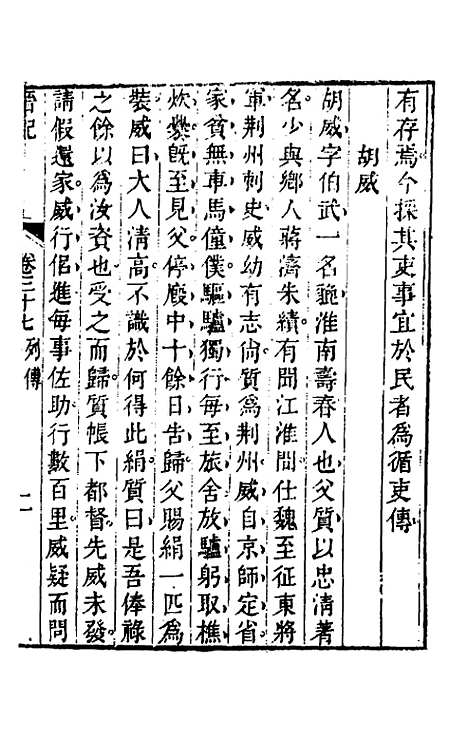 有存焉今採其吏事宜於民者為循吏傳
胡威
胡威字伯武一名貔淮南壽春人也父質以忠清著
名少與鄉人蔣濟朱績有聞江淮間仕魏至征東將
軍荆州刺史威幼有志尙質為荆州威自京師定省
家貧無車馬僮僕驅驢獨行每至旅舍放驢躬取樵
炊爨旣至見父停廐中十餘日告歸父賜絹一匹為
裝威曰大人清高不識於何得此絹質曰是吾俸祿
之餘以為汝資也受之而歸質帳下都督先威未發
請假還家威行侶進每事佐助行數百里威疑而問
晉記
卷三十七 列傳
二